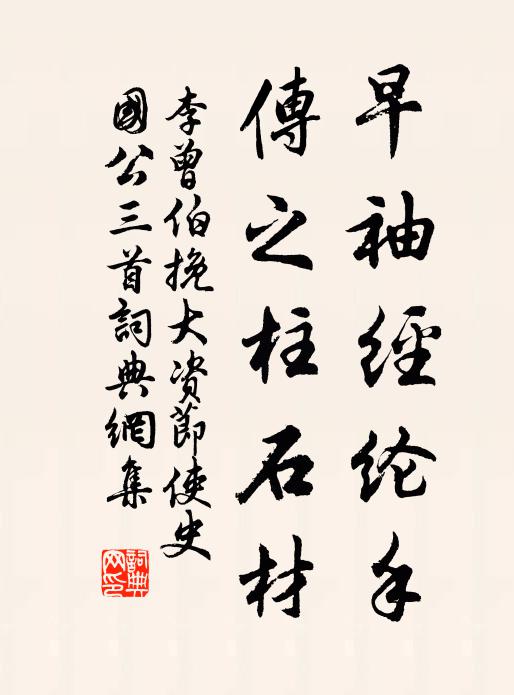 早袖經纶手
傳之柱石材
李曾伯挽大资節使史
國公三首詞典網集
詞典
网印